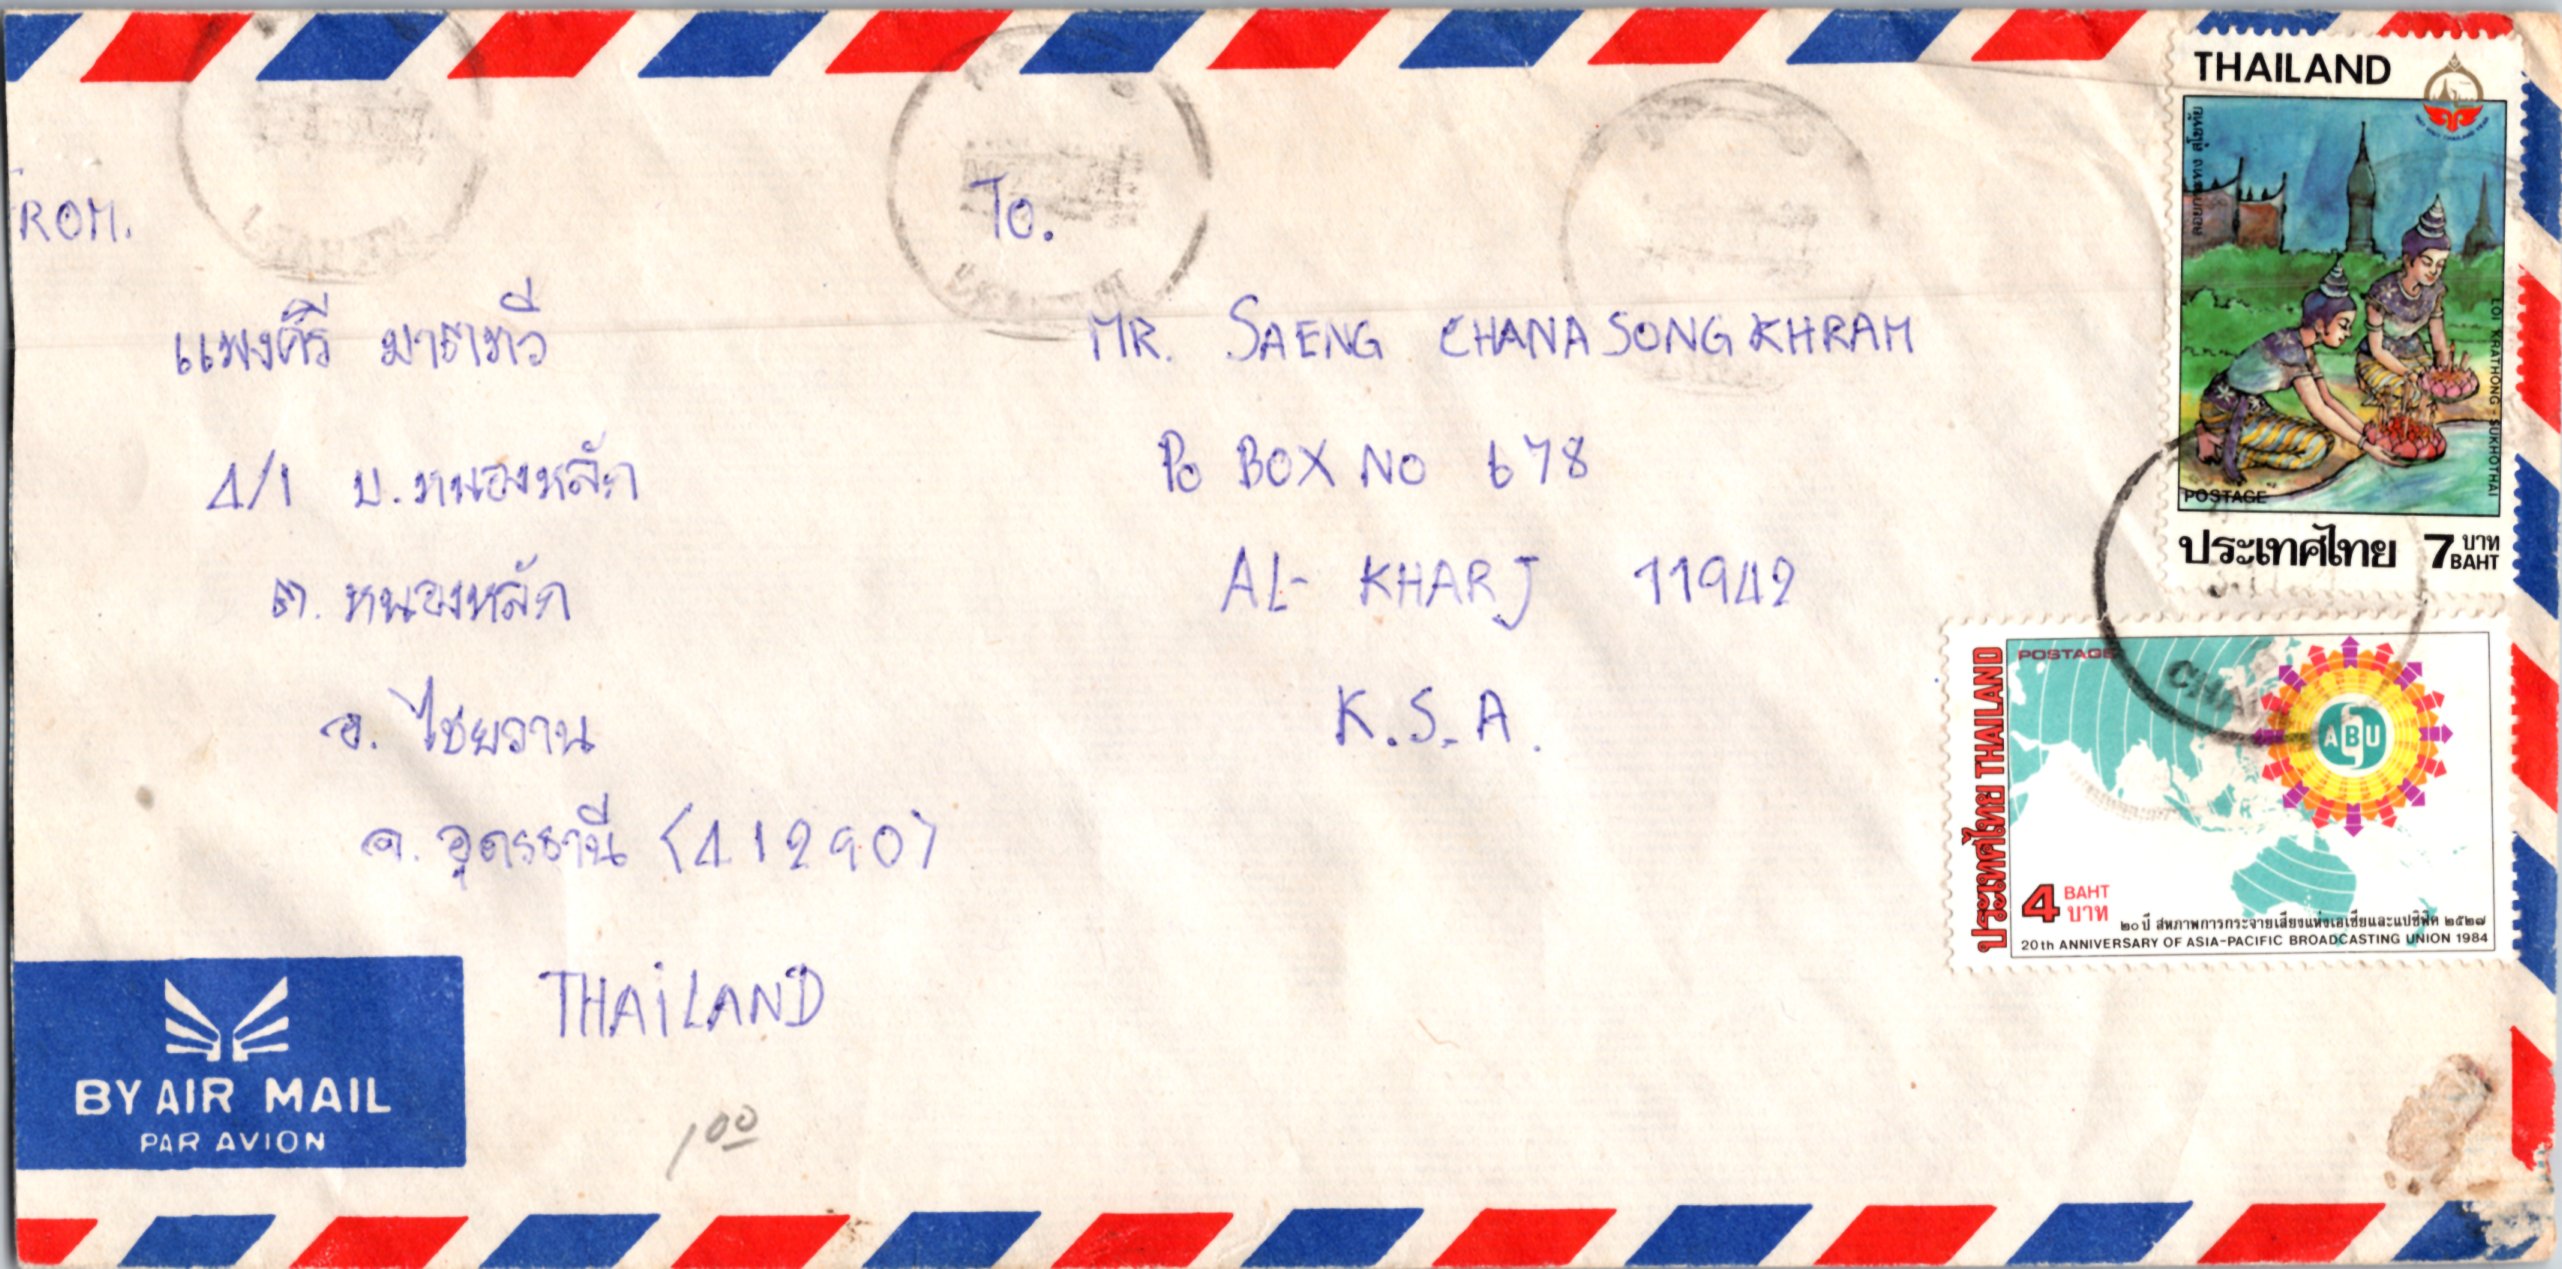 ROM.
แพงศิรี มาตทวี
4/1 บ.หนองหลัก
ต. หนองหลัก
อ. ไชยวาน
จ. อุดรธานี (41290)
THAILAND
To.
MR. SAENG CHANASONGKHRAM
PO BOX NO 678
AL- KHARJ 11942
K.S.A.
THAILAND
ลอยกระทง สุโขทัย
LOI KRATHONG - SUKHOTHAI
POSTAGE
ประเทศไทย 7 บาท BAHT
ประเทศไทย THAILAND
POSTAGE
ABU
4 BAHT บาท
๒๐ ปี สหภาพการกระจายเสียงแห่งเอเชียและแปซิฟิค ๒๕๒๗
20th ANNIVERSARY OF ASIA-PACIFIC BROADCASTING UNION 1984
BY AIR MAIL
PAR AVION
1 00